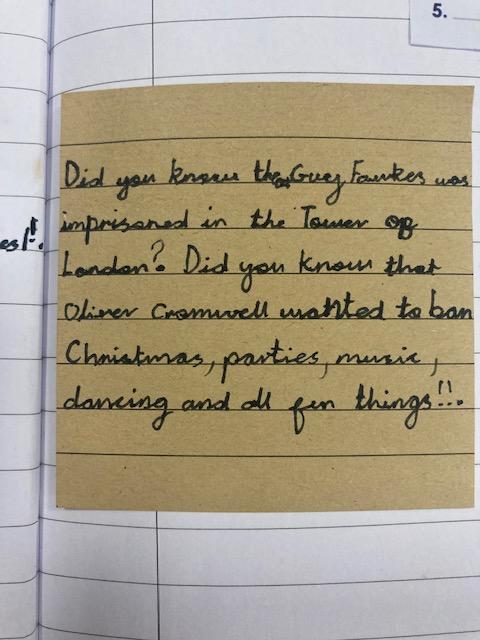 5.
es!!.
Did you know that Guy Fawkes was
imprisoned in the Tower of
London? Did you know that
Oliver Cromwell wanted to ban
Christmas, parties, music,
dancing and all fun things!!..